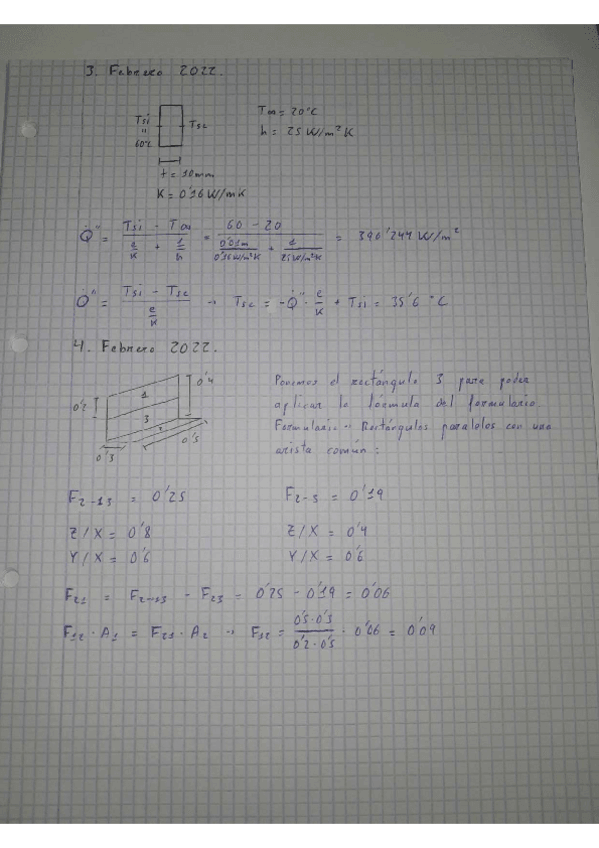 3. Febrero 2022.
Tsi
"
60°C
Tse
T∞ = 20°C
h = 25 W/m²K
t = 10mm
K = 0'16 W/mK
Q̇" = (Tsi - T∞) / (e/K + 1/h) = (60 - 20) / (0'01m/0'16 W/m²K + 1/25 W/m²K) = 390'244 W/m²
Q̇" = (Tsi - Tse) / (e/K) → Tse = -Q̇" · e/K + Tsi = 35'6 °C
4. Febrero 2022.
0'2
0'4
1
3
2
0'3
0'5
Ponemos el rectángulo 3 para poder
aplicar la fórmula del formulario
Formulario → Rectángulos paralelos con una
arista común:
F2-13 = 0'25
F2-3 = 0'19
Z/X = 0'8
Z/X = 0'4
Y/X = 0'6
Y/X = 0'6
F21 = F2-13 - F23 = 0'25 - 0'19 = 0'06
F12 · A1 = F21 · A2 → F12 = (0'5·0'3)/(0'2·0'5) · 0'06 = 0'09